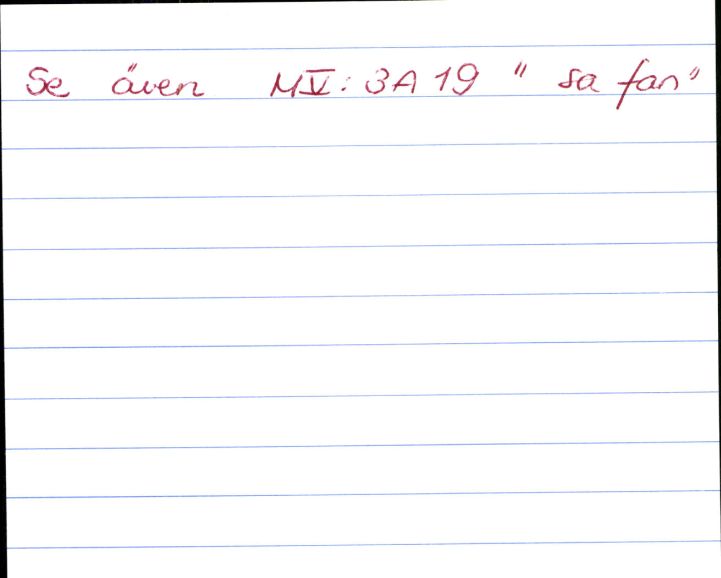 Se även MV: 3A 19 " sa fan"